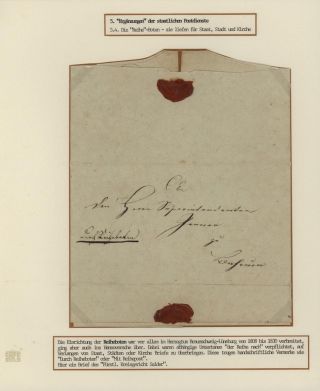 5. "Ergänzungen" der staatlichen Postdienste
5.4. Die "Reihe"-Boten - sie liefen für Staat, Stadt und Kirche
An
den Herrn Superintendenten
zu
Die Einrichtung der Reiheboten war vor allem im Herzogtum Braunschweig-Lüneburg von 1608 bis 1800 verbreitet,
ging aber auch ins Hannoversche über. Dabei waren abhängige Untertanen "der Reihe nach" verpflichtet, auf
Verlangen von Staat, Städten oder Kirche Briefe zu überbringen. Diese tragen handschriftliche Vermerke wie
"Durch Reiheboten" oder "Mit Reihepost".
Hier ein Brief des "Fürstl. Amtsgericht